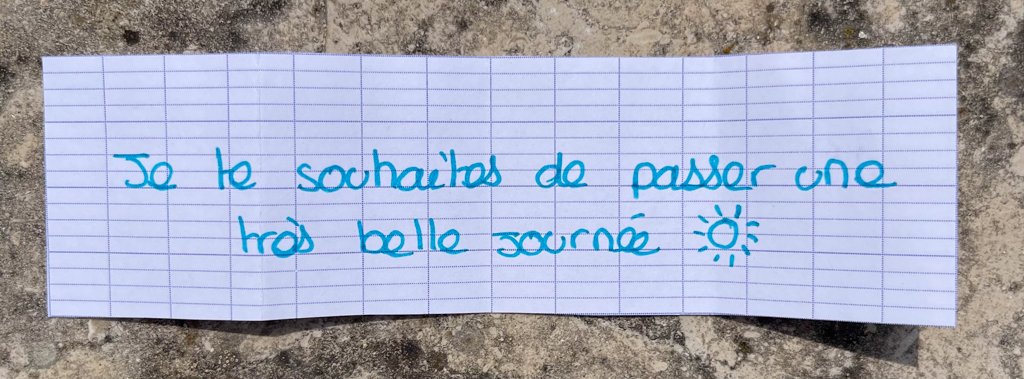 Je te souhaites de passer une
très belle journée